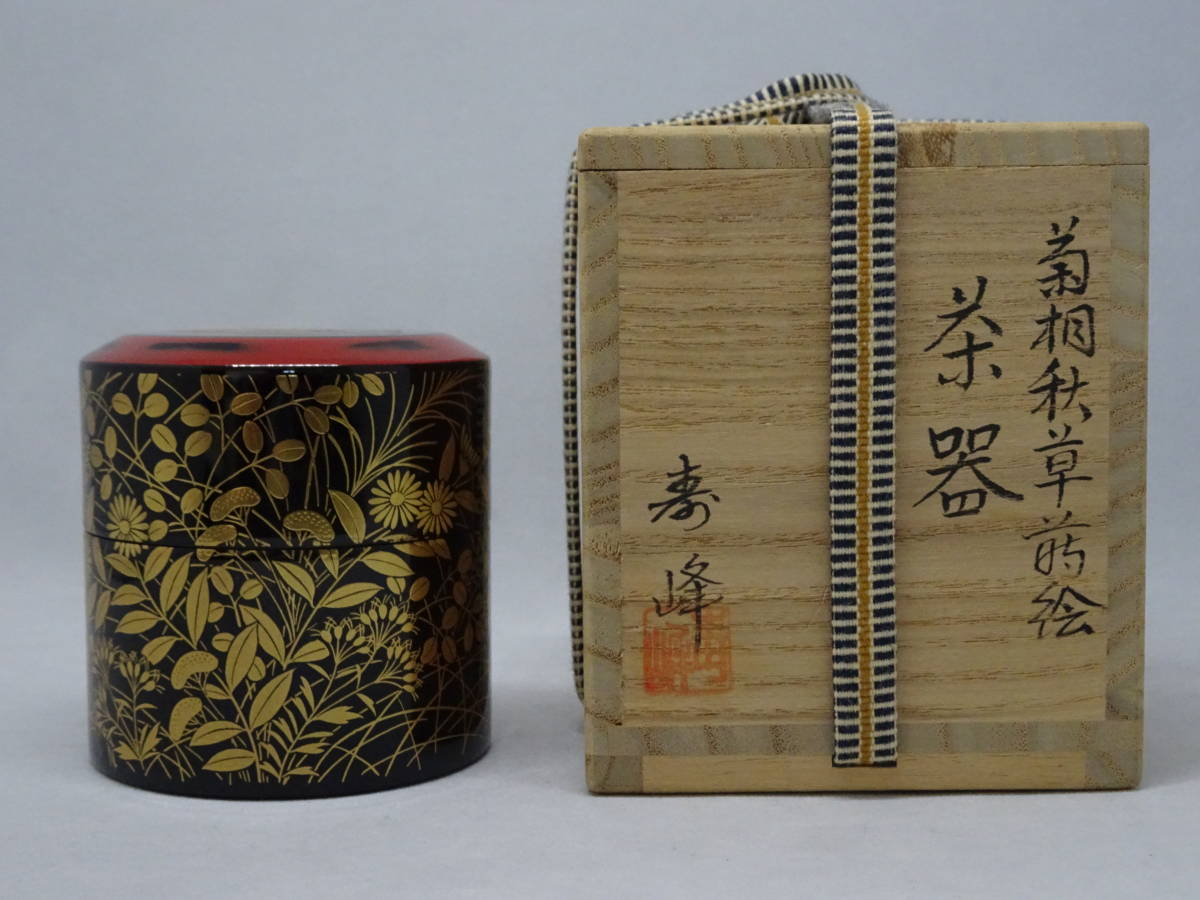 菊桐秋草蒔絵
茶器
寿峰